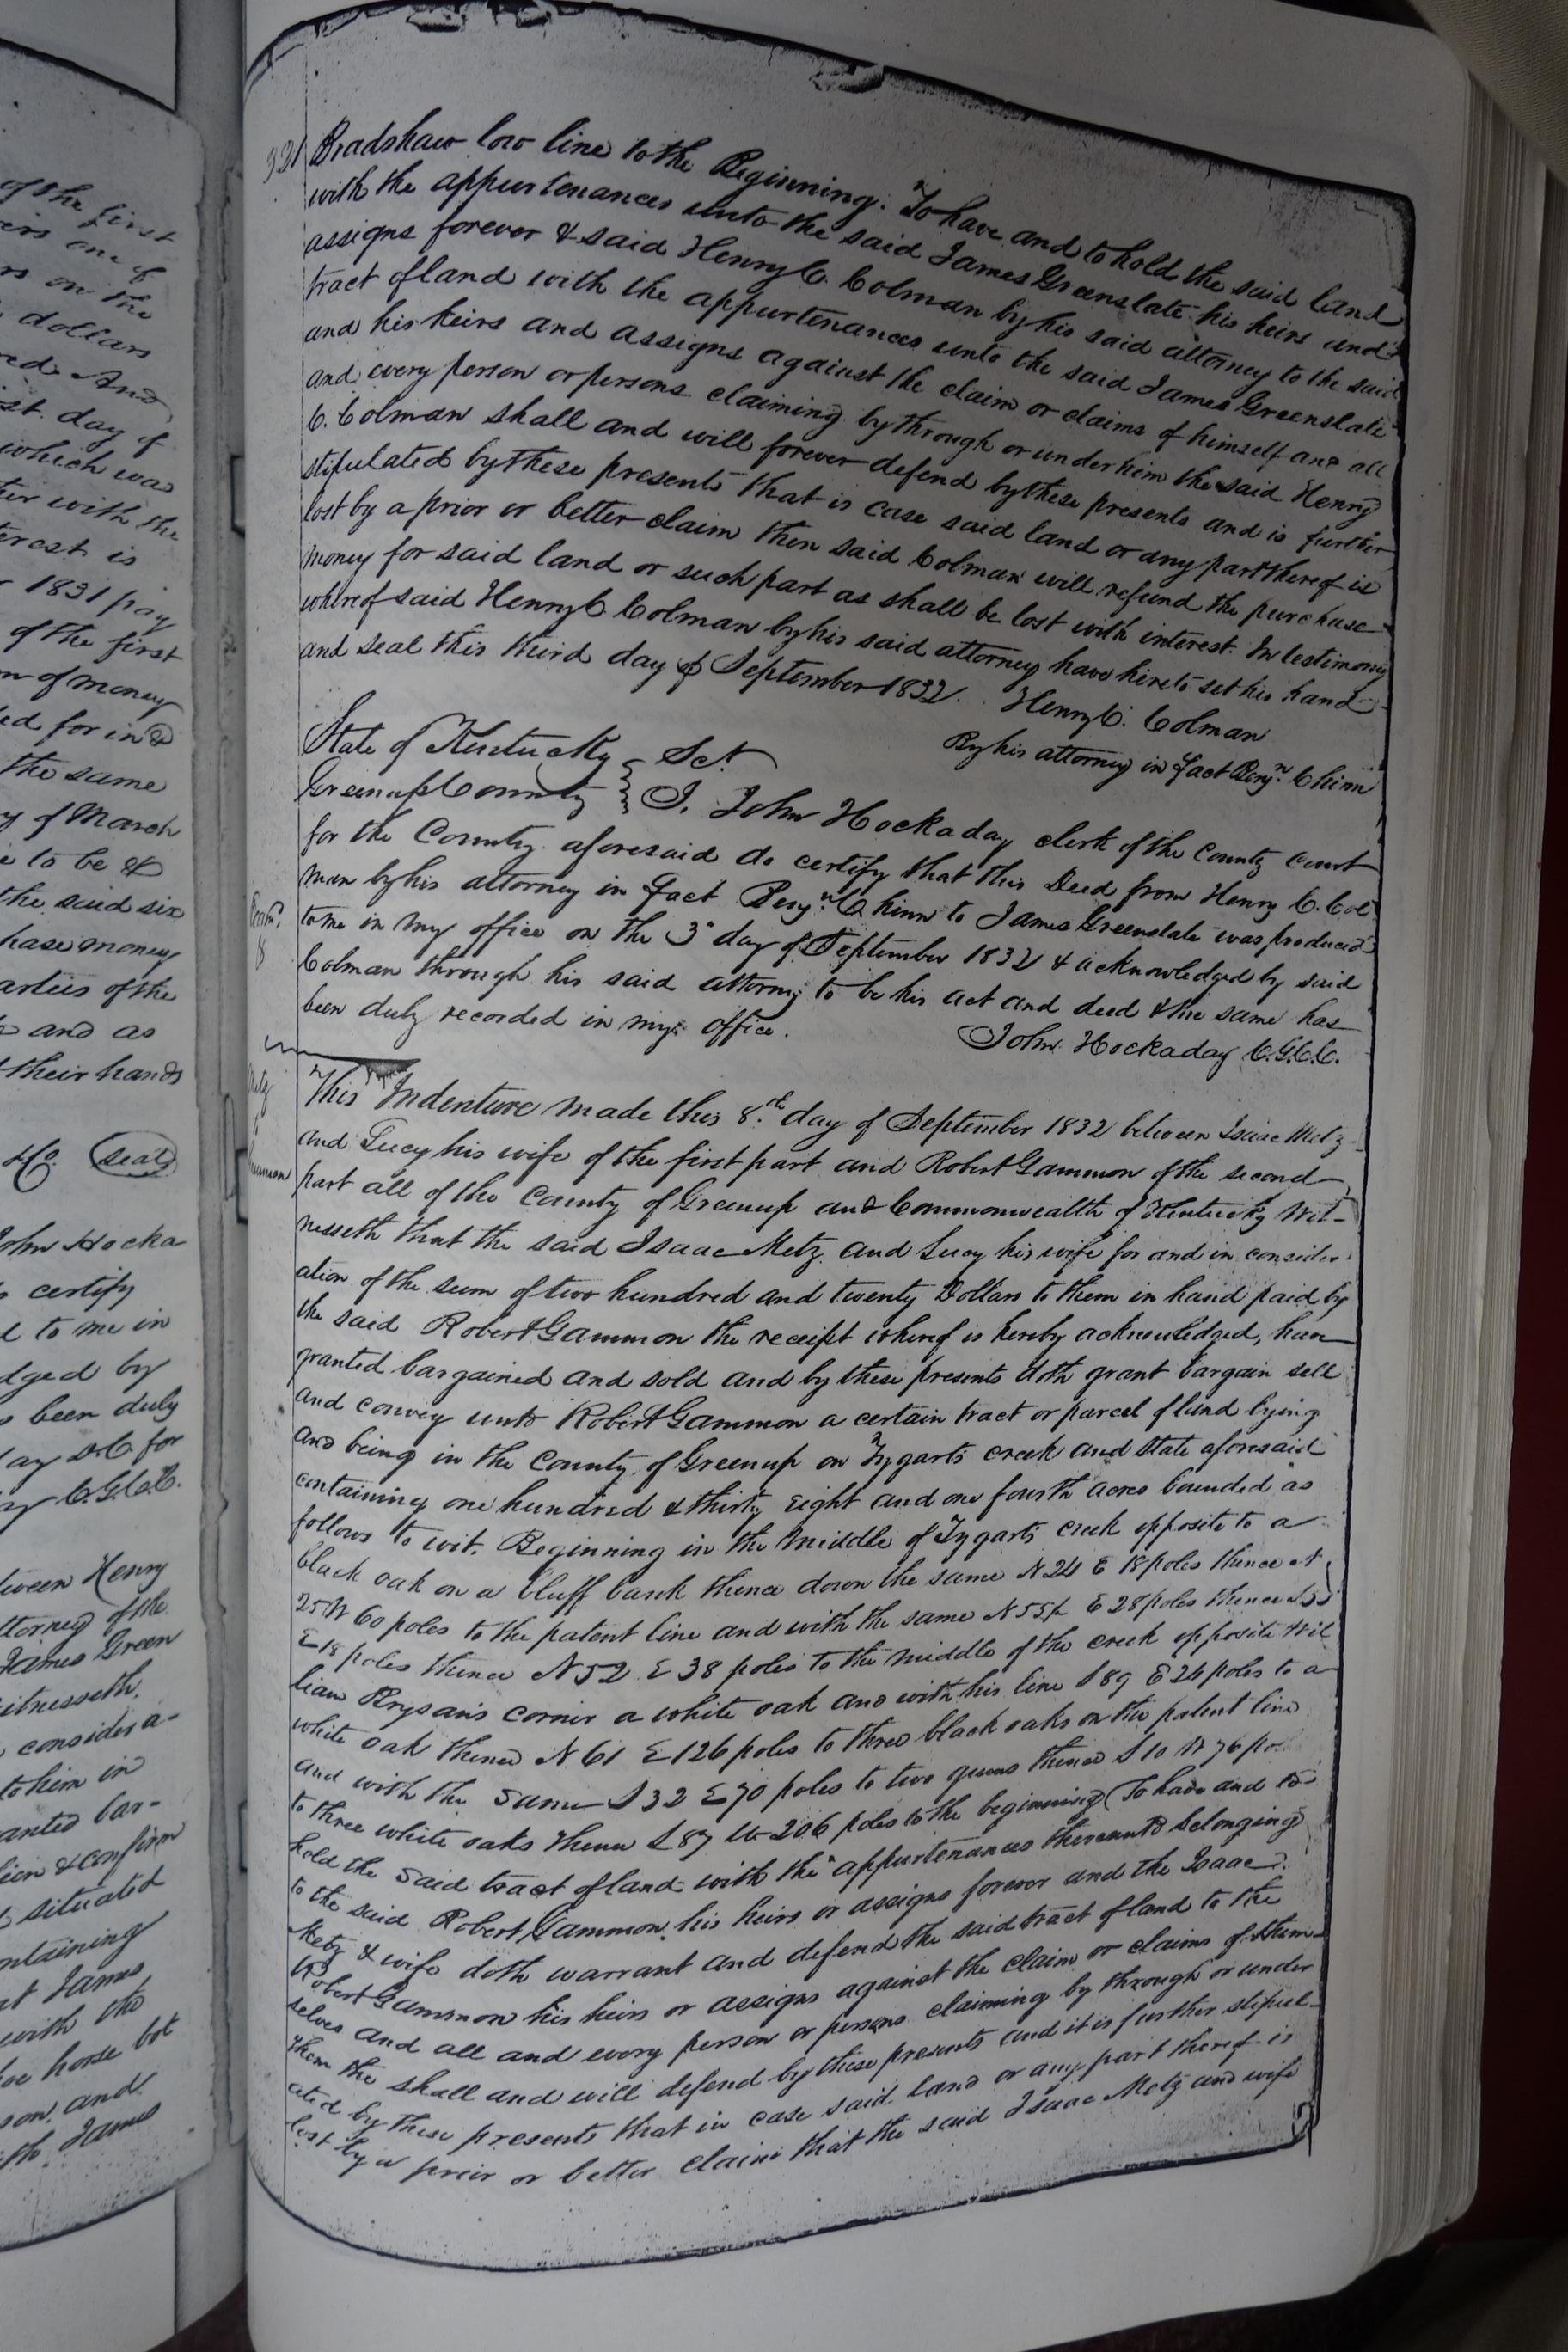 of the first
one of
on the
dollars
And
day of
which was
with the
is
1831 pay
of the first
of money
for in &
the same
of March
to be &
the said six
money
of the
and as
their hands
Seal
John Hocka
certify
to me in
by
been duly
for
C.G.C.C.
Henry
of the
James Green
to him in
bar-
& confirm
situated
James
with the
horse
and
James
321
Bradshaw low line to the Beginning. To have and to hold the said land
with the appurtenances unto the said James Greenslate his heirs and
assigns forever & said Henry C. Colman by his said attorney to the said
tract of land with the appurtenances unto the said James Greenslate
and his heirs and assigns against the claim or claims of himself and all
and every person or persons claiming by through or under him the said Henry
C. Colman shall and will forever defend by these presents and is further
stipulated by these presents that is case said land or any part thereof is
lost by a prior or better claim then said Colman will refund the purchase
money for said land or such part as shall be lost with interest. In testimony
whereof said Henry C Colman by his said attorney have hereto set his hand
and seal this third day of September 1832. Henry C. Colman
By his attorney in fact Benjn. Chinn
State of Kentucky Sct.
Greenup County I, John Hockaday clerk of the County court
for the County aforesaid do certify that this Deed from Henry C. Col
man by his attorney in fact Benjn. Chinn to James Greenslate was produced
to me in my office on the 3d day of September 1832 & acknowledged by said
Colman through his said attorny to be his act and deed & the same has
been duly recorded in my office. John Hockaday C.G.C.C.
This Indenture made this 8th. day of September 1832 between Isaac Metz
and Lucy his wife of the first part and Robert Gammon of the second
part all of the County of Greenup and Commonwealth of Kentucky Wit-
nesseth that the said Isaac Metz and Lucy his wife for and in consider
ation of the sum of two hundred and twenty Dollars to them in hand paid by
the said Robert Gammon the receipt whereof is hereby acknowledged, have
granted bargained and sold and by these presents doth grant bargain sell
and convey unto Robert Gammon a certain tract or parcel of land lying
and being in the County of Greenup on Tygarts creek and State aforesaid
containing one hundred & thirty Eight and one fourth acres bounded as
follows to wit. Beginning in the middle of Tygarts creek opposite to a
black oak on a bluff bank thence down the same N 24 E 18 poles thence N
25 W 60 poles to the patent line and with the same N 55½ E 28 poles thence
E 18 poles thence N 52 E 38 poles to the middle of the creek opposite Wil
liam Brysan's corner a white oak and with his line S 89 E 26 poles to a
white oak thence N 61 E 126 poles to three black oaks on the patent line
and with the same S 32 E 70 poles to two gums thence S 10 W 76 po
to three white oaks thence S 87 W 206 poles to the beginning (To have and to
hold the said tract of land with the appurtenances thereunto belonging
to the said Robert Gammon his heirs or assigns forever and the Isaac
Metz & wife doth warrant and defend the said tract of land to the
Robert Gammon his heirs or assigns against the claim or claims of them-
selves and all and every person or persons claiming by through or under
them the shall and will defend by these presents and it is further stipul-
ated by these presents that in case said land or any part thereof is
lost by a prior or better claim that the said Isaac Metz and wife